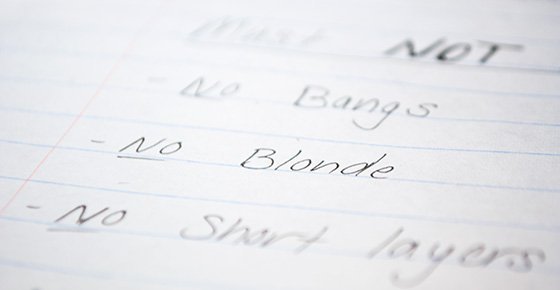 Must NOT
- No Bangs
- No Blonde
- No Short layers